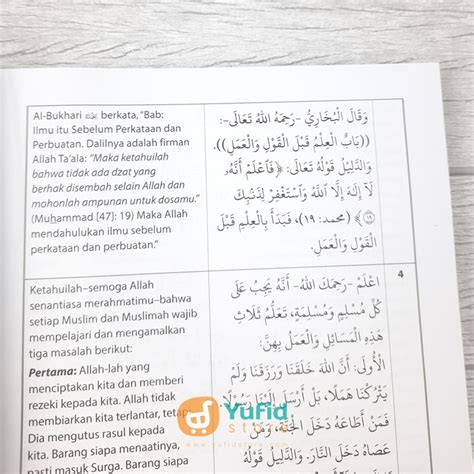 Al-Bukhari berkata, "Bab:
Ilmu itu Sebelum Perkataan dan
Perbuatan. Dalilnya adalah firman
Allah Ta'ala: "Maka ketahuilah
bahwa tidak ada dzat yang
berhak disembah selain Allah dan
mohonlah ampunan untuk dosamu."
(Muhammad [47]: 19) Maka Allah
mendahulukan ilmu sebelum
perkataan dan perbuatan."
وَقَالَ الْبُخَارِيُّ -رَحِمَهُ اللهُ تَعَالَى-:
((بَابُ الْعِلْمُ قَبْلَ الْقَوْلِ وَالْعَمَلِ)).
وَالدَّلِيْلُ قَوْلُهُ تَعَالَى: ﴿فَٱعْلَمْ أَنَّهُۥ
لَآ إِلَٰهَ إِلَّا ٱللَّهُ وَٱسْتَغْفِرْ لِذَنۢبِكَ
﴿١٩﴾ (محمد: ١٩)، فَبَدَأَ بِالْعِلْمِ قَبْلَ
الْقَوْلِ وَالْعَمَلِ.
4
Ketahuilah–semoga Allah
senantiasa merahmatimu–bahwa
setiap Muslim dan Muslimah wajib
mempelajari dan mengamalkan
tiga masalah berikut:
Pertama: Allah-lah yang
menciptakan kita dan memberi
rezeki kepada kita. Allah tidak
membiarkan kita terlantar, tetapi
Dia mengutus rasul kepada
kita. Barang siapa menaatinya,
pasti masuk Surga. Barang siapa
اعْلَمْ -رَحِمَكَ اللهُ- أَنَّهُ يَجِبُ عَلَى
كُلِّ مُسْلِمٍ وَمُسْلِمَةٍ، تَعَلُّمُ ثَلَاثِ
هَذِهِ الْمَسَائِلِ وَالْعَمَلُ بِهِنَّ:
الْأُولَى: أَنَّ اللهَ خَلَقَنَا وَرَزَقَنَا وَلَمْ
يَتْرُكْنَا هَمَلًا، بَلْ أَرْسَلَ إِلَيْنَا رَسُوْلًا
فَمَنْ أَطَاعَهُ دَخَلَ الْجَنَّةَ، وَمَنْ
عَصَاهُ دَخَلَ النَّارَ. وَالدَّلِيْلُ قَوْلُهُ
YuFid
store
www.yufidstore.com